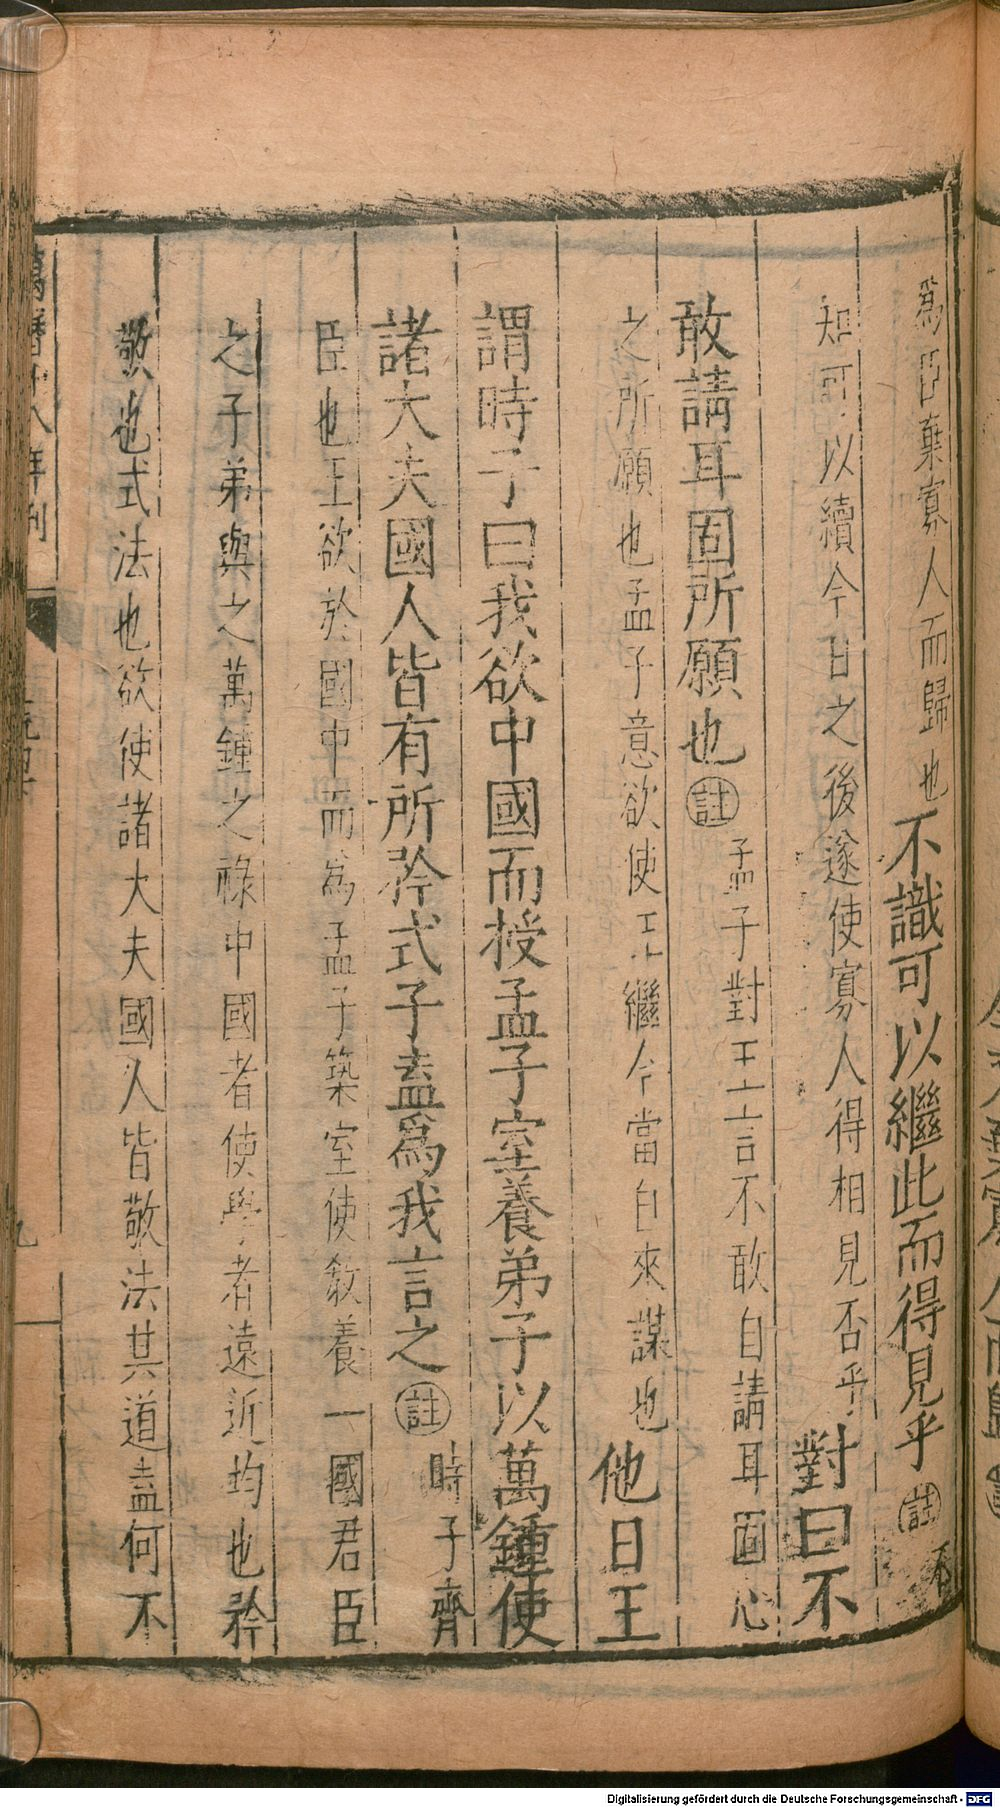 爲臣棄寡人而歸也不識可以繼此而得見乎註不
知可以續今日之後遂使寡人得相見否乎對曰不
敢請耳固所願也註孟子對王言不敢自請耳固心
之所願也孟子意欲使王繼今當自來謀也他日王
謂時子曰我欲中國而授孟子室養弟子以萬鍾使
諸大夫國人皆有所矜式子盍爲我言之註時子齊
臣也王欲於國中而爲孟子築室使教養一國君臣
之子弟與之萬鍾之祿中國者使學者遠近均也矜
敬也式法也欲使諸大夫國人皆敬法其道盍何不
萬曆十八年刊
九
Digitalisierung gefördert durch die Deutsche Forschungsgemeinschaft - DFG